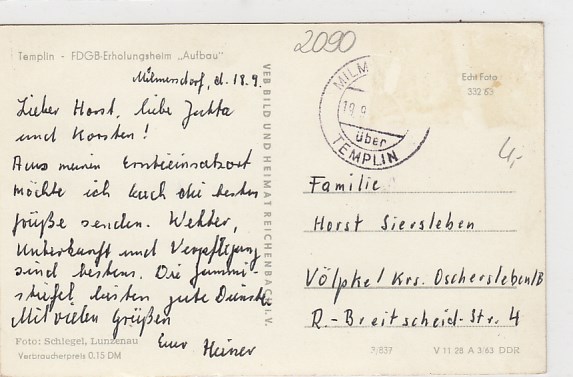 2090
Templin - FDGB-Erholungsheim „Aufbau"
Milmersdorf, d. 18.9.
Lieber Horst, liebe Jutta
und Karsten!
Aus meinem Ernteeinsatzort
möchte ich Euch die besten
Grüße senden. Wetter,
Unterkunft und Verpflegung
sind bestens. Die Gummi-
stiefel leisten gute Dienste.
Mit vielen Grüßen
Euer Heiner
Foto: Schlegel, Lunzenau
Verbraucherpreis 0.15 DM
VEB BILD UND HEIMAT REICHENBACH i. V.
MILM
19.9
über
TEMPLIN
Echt Foto
332 63
4,-
Familie
Horst Siersleben
Völpke/ Krs. Oschersleben/B
R.-Breitscheid-Str. 4
V 11 28 A 3/63 DDR